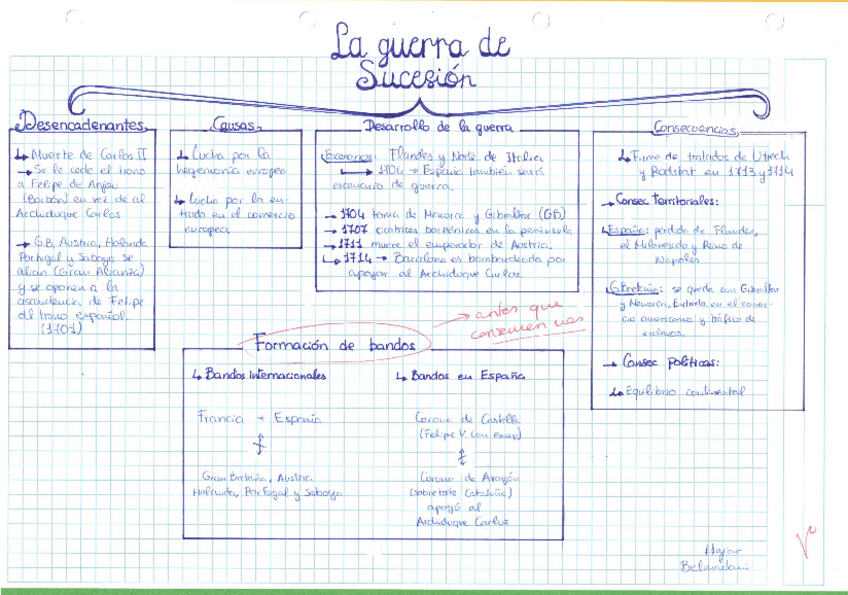 La guerra de
Sucesión
Desencadenantes
Muerte de Carlos II
→ Se le cede el trono
a Felipe de Anjou
(Borbón) en vez de al
Archiduque Carlos
→ GB, Austria, Holanda
Portugal y Saboya se
alían (Gran Alianza)
y se oponen a la
ascendencia de Felipe
al trono español.
Causas
Lucha por la
hegemonía europea
Lucha por la en-
trada en el comercio
europeo.
Desarrollo de la guerra
Flandes y Norte de Italia
→ 1704 → España también será
escenario de guerra.
→ 1704 toma de Menorca y Gibraltar (GB)
→ 1707 victorias borbónicas en la península
→ 1711 muere el emperador de Austria.
→ 1714 → Barcelona es bombardeada por
apoyar al Archiduque Carlos.
Consecuencias
Firma de tratados de Utrech
y Radstat en 1713 y 1714
→ Consec territoriales:
España: pérdida de Flandes,
el Milanesado y Reino de
Napoles
G.Bretaña: se queda con Gibraltar
y Menorca. Entrada en el comer-
cio americano y tráfico de
esclavos.
→ Consec políticas:
Equilibrio continental
→ antes que
consecuencias
Formación de bandos
Bandos Internacionales
Francia + España
Gran Bretaña, Austria,
Holanda, Portugal y Saboya
Bandos en España
Corona de Castilla
(Felipe V
Corona de Aragón
(sobretodo Cataluña)
apoyó al
Archiduque Carlos
Hajar